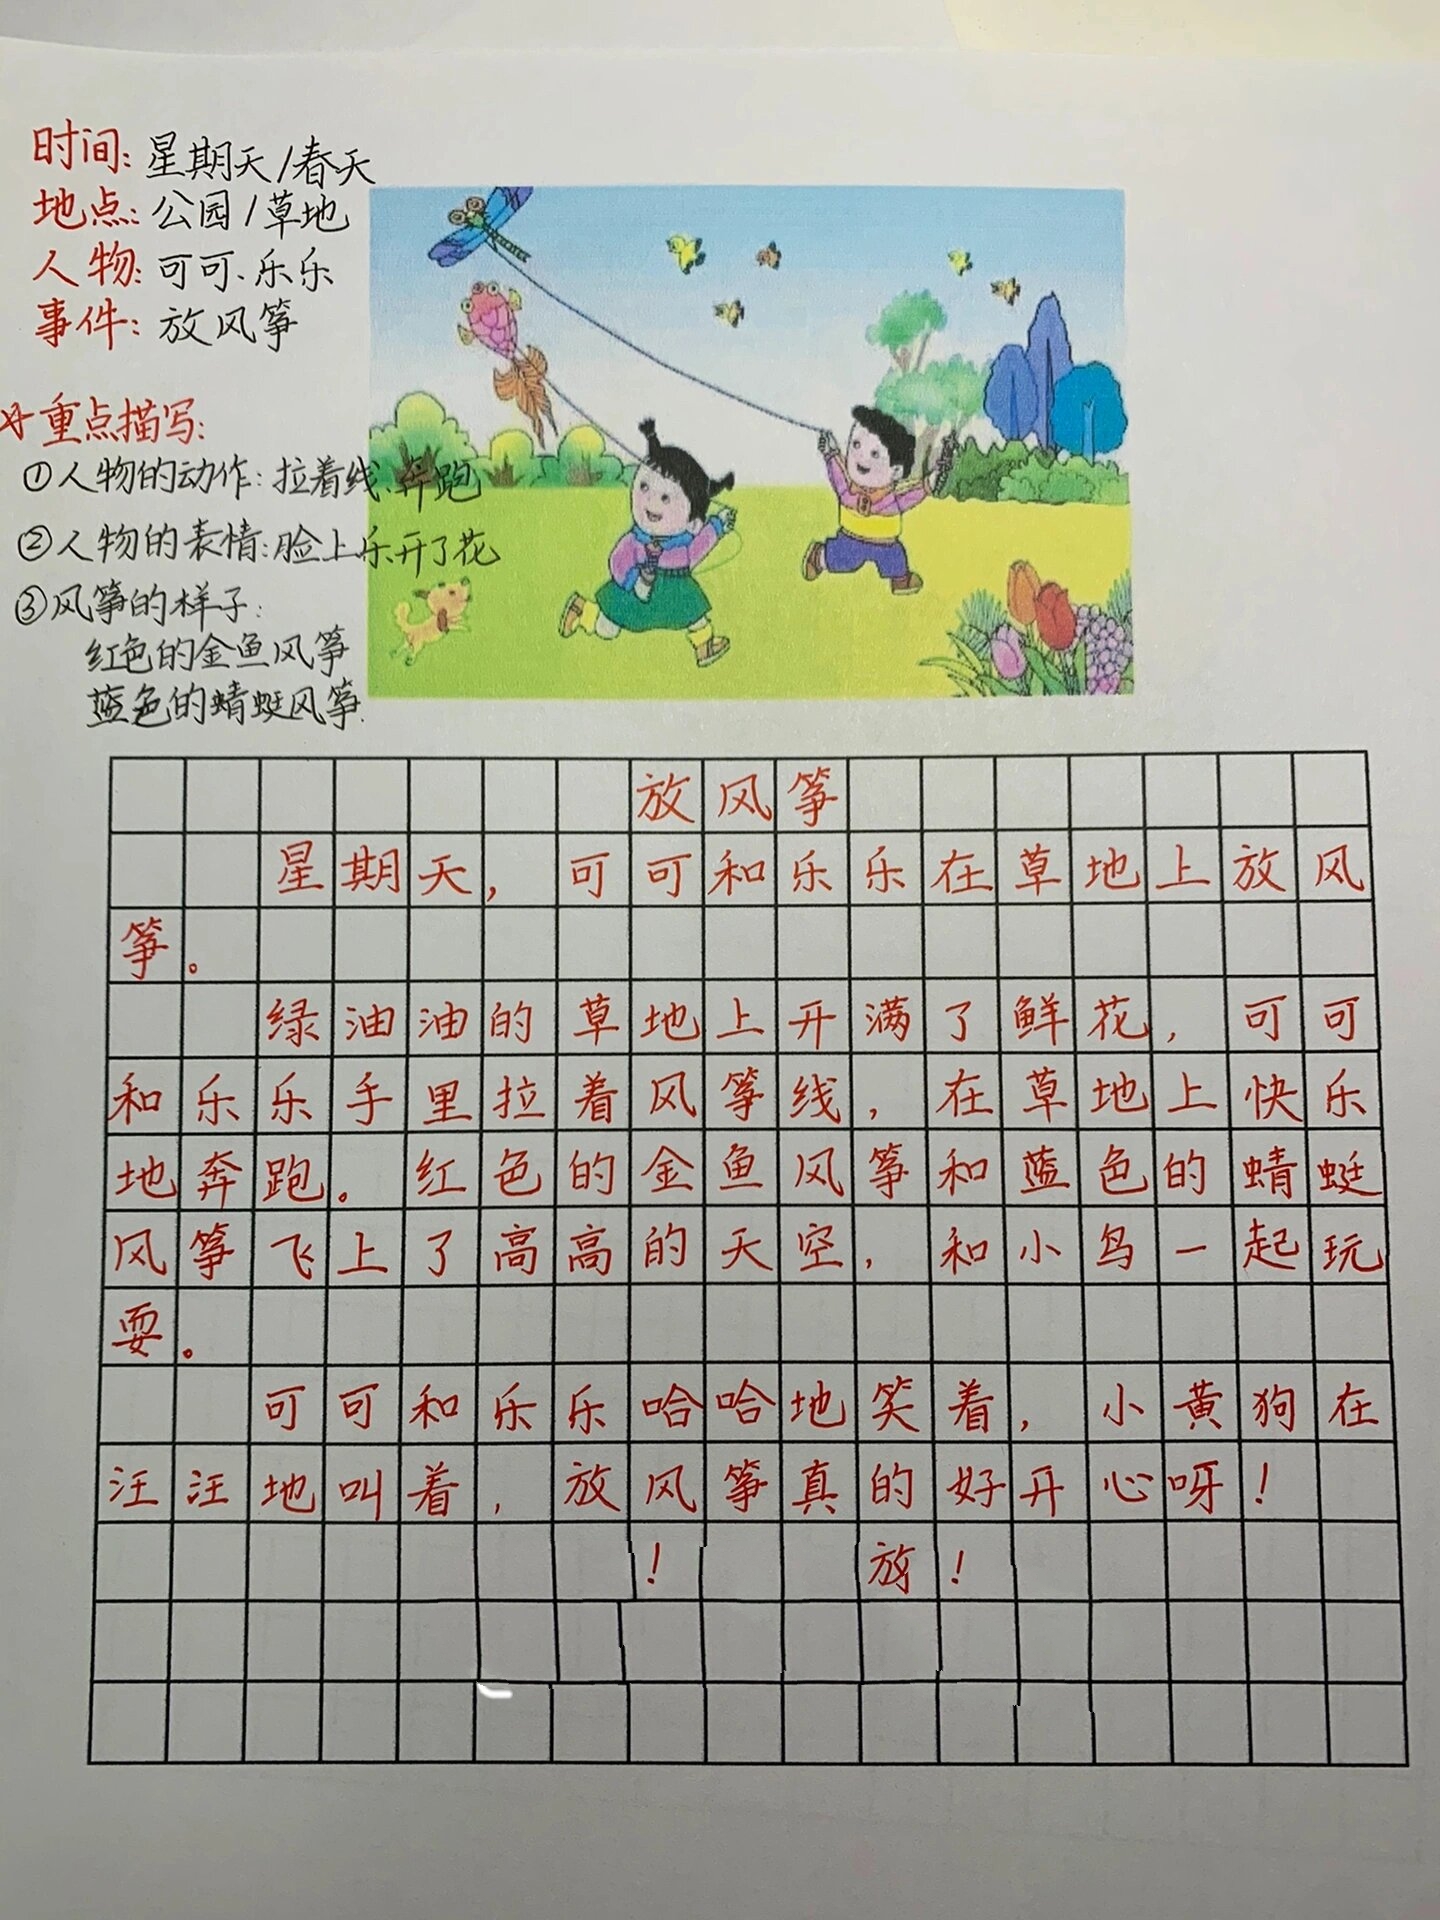 时间：星期天/春天
地点：公园/草地
人物：可可、乐乐
事件：放风筝
重点描写：
①人物的动作：拉着线、奔跑
②人物的表情：脸上乐开了花
③风筝的样子：
红色的金鱼风筝
蓝色的蜻蜓风筝.
放风筝
星期天，可可和乐乐在草地上放风
筝。
绿油油的草地上开满了鲜花，可可
和乐乐手里拉着风筝线，在草地上快乐
地奔跑。红色的金鱼风筝和蓝色的蜻蜓
风筝飞上了高高的天空，和小鸟一起玩
耍。
可可和乐乐哈哈地笑着，小黄狗在
汪汪地叫着，放风筝真的好开心呀！
！ 放！